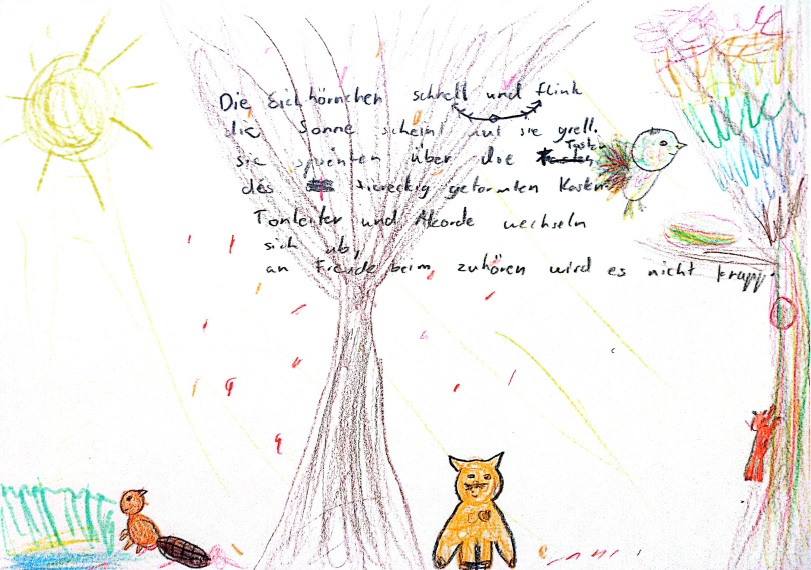 Die Eichhörnchen schnell und flink
die Sonne scheint auf sie grell.
sie sprinten über die Tasten
des viereckig geformten Kasten
Tonleiter und Akorde wechseln
sich ab,
an Freude beim zuhören wird es nicht knapp.